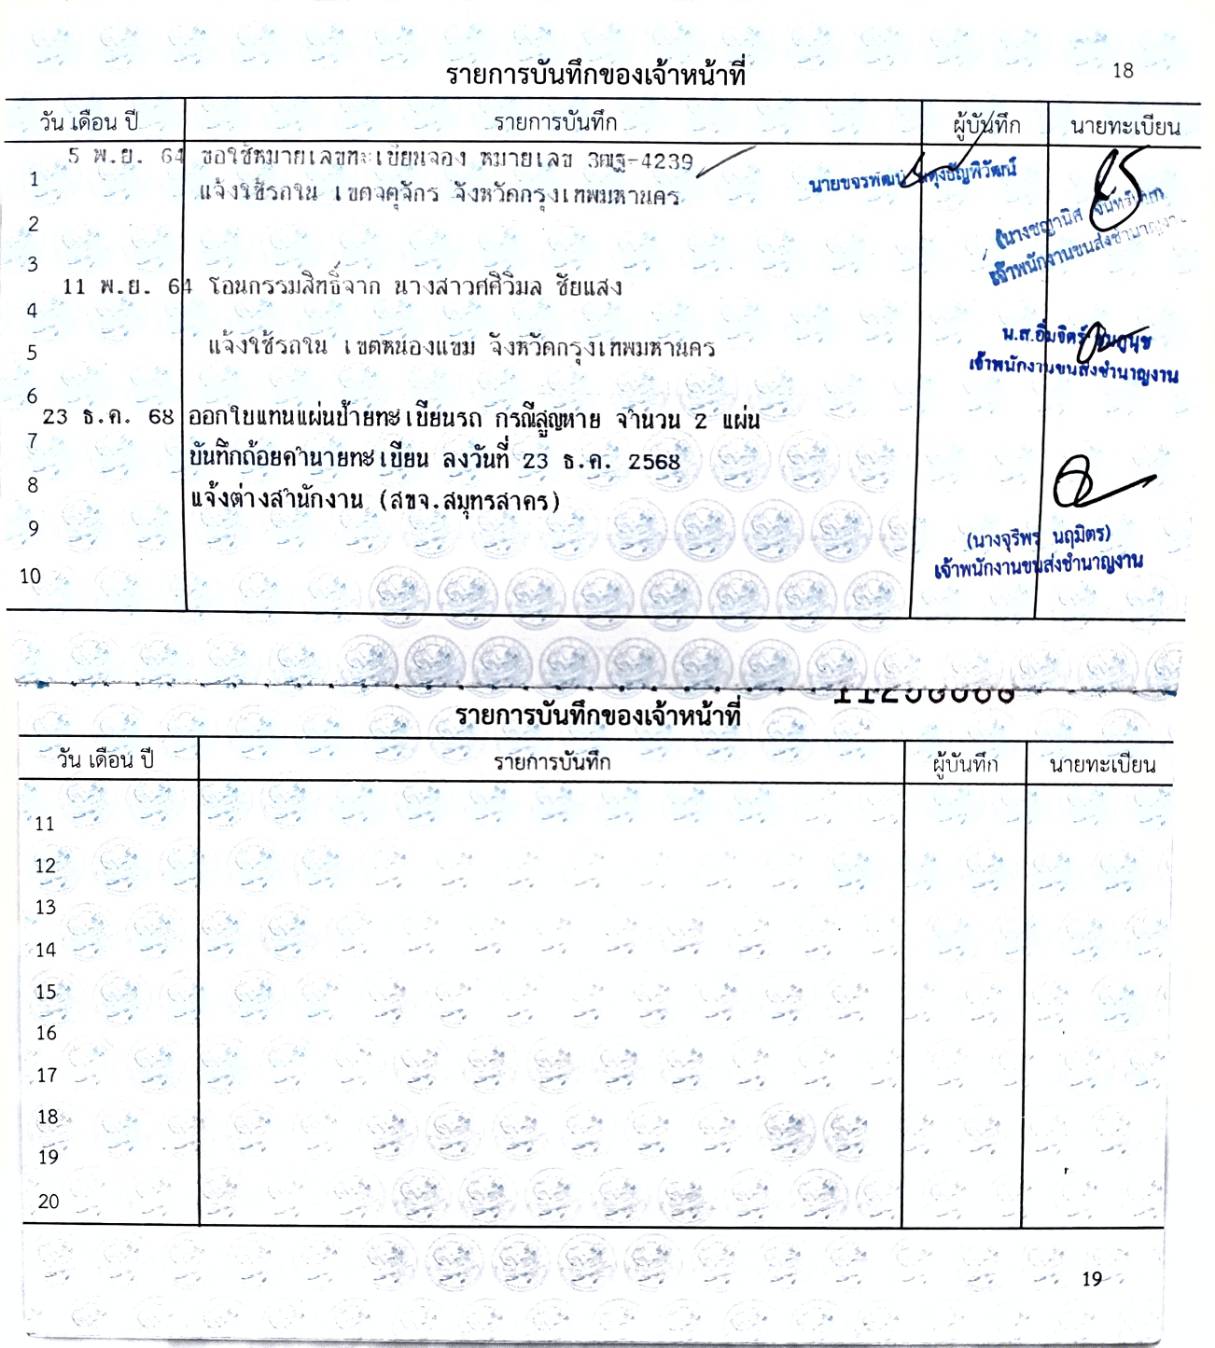 รายการบันทึกของเจ้าหน้าที่
18
วัน เดือน ปี รายการบันทึก ผู้บันทึก นายทะเบียน
5 พ.ย. 64 ขอใช้หมายเลขทะเบียนจอง หมายเลข 3ฒฐ-4239
1 แจ้งใช้รถใน เขตจตุจักร จังหวัดกรุงเทพมหานคร
นายขจรพัฒน์
2
(นางชญานิศ
เจ้าพนักงานขนส่งชำนาญงาน
3
11 พ.ย. 64 โอนกรรมสิทธิ์จาก นางสาวศศิวิมล ชัยแสง
4
5 แจ้งใช้รถใน เขตหนองแขม จังหวัดกรุงเทพมหานคร
เจ้าพนักงานขนส่งชำนาญงาน
6
23 ธ.ค. 68 ออกใบแทนแผ่นป้ายทะเบียนรถ กรณีสูญหาย จำนวน 2 แผ่น
7 บันทึกถ้อยคำนายทะเบียน ลงวันที่ 23 ธ.ค. 2568
8 แจ้งต่างสำนักงาน (สขจ.สมุทรสาคร)
9
(นางจุรีพร นฤมิตร)
เจ้าพนักงานขนส่งชำนาญงาน
10
รายการบันทึกของเจ้าหน้าที่
วัน เดือน ปี รายการบันทึก ผู้บันทึก นายทะเบียน
11
12
13
14
15
16
17
18
19
20
19